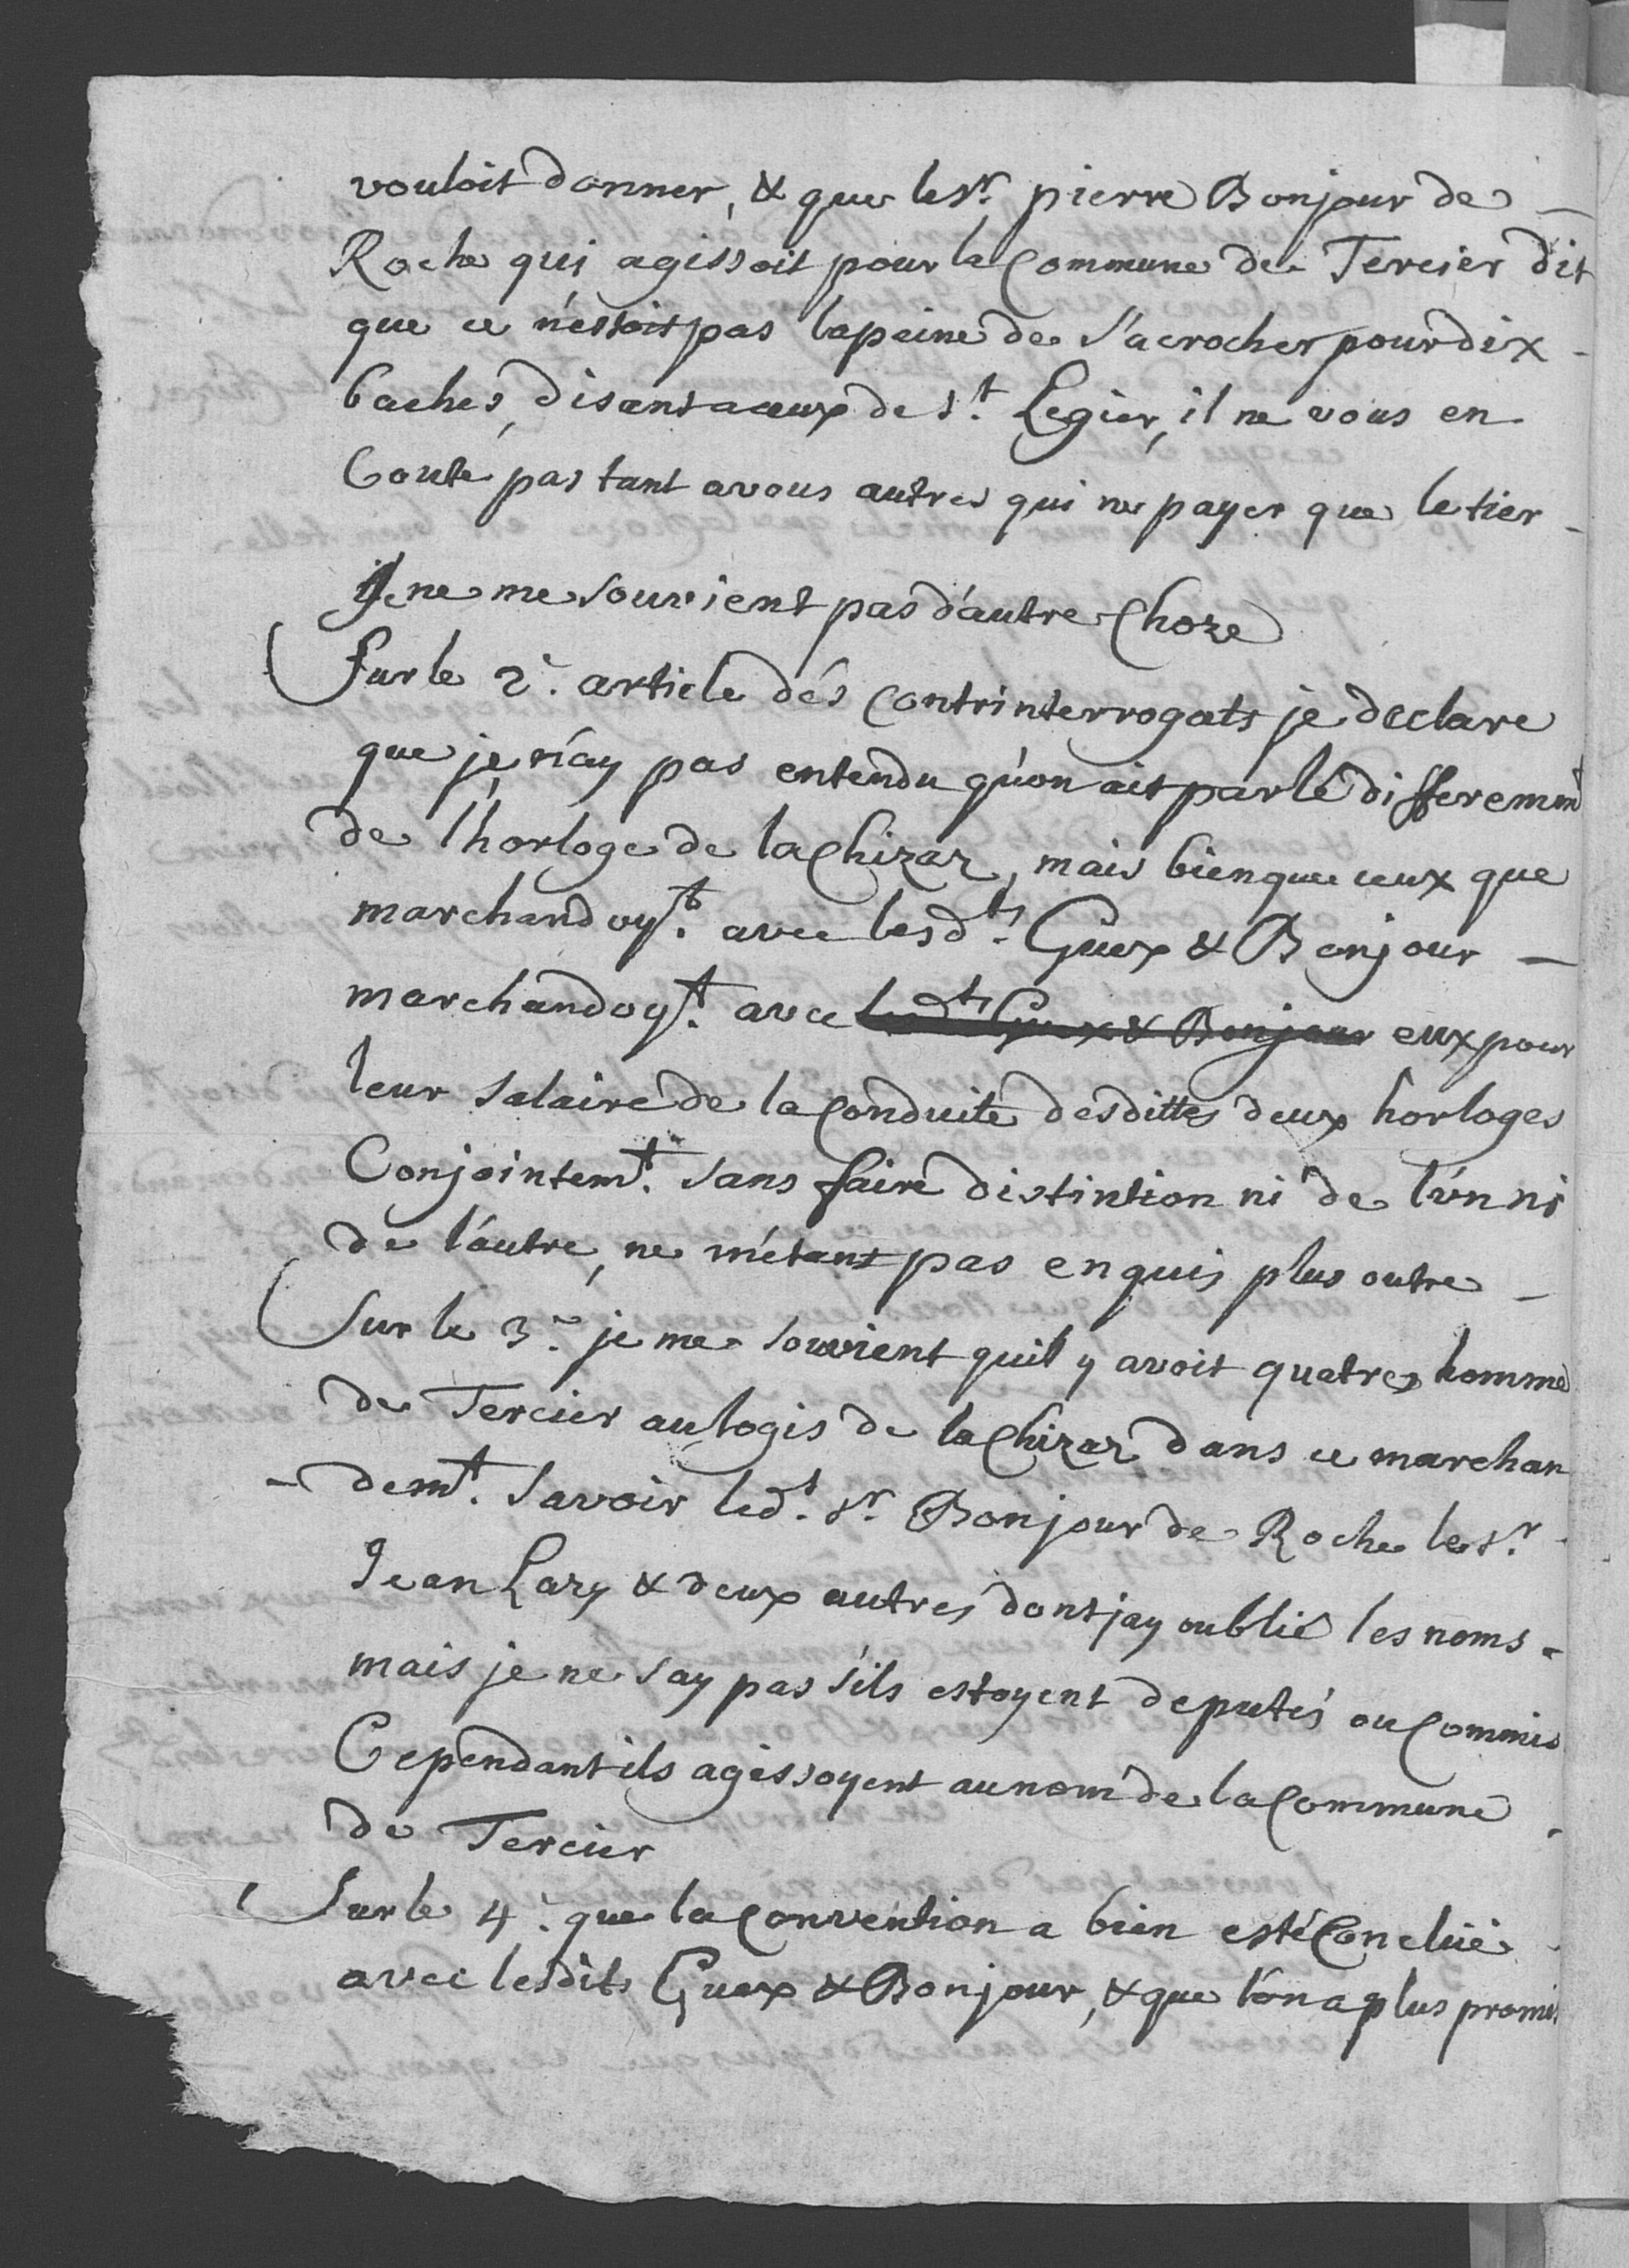 vouloit donner, & que le Sr. pierre Bonjour de -
Roche qui agissoit pour la Commune de Tercier dit
que ce n'estoit pas la peine de s'acrocher pour dix -
baches, disant a ceux de St. Legier, il ne vous en
Coute pas tant a vous autres qui ne payer que le tier -
Je ne me souvient pas d'autre Choze
Sur le 2e. article dés Contrinterrogats je declare
que je n'ay pas entendu qu'on ait parlé differemm
de l'horloge de la Chizaz, mais bien que ceux que
marchandoyt. avec lesdts Guex & Bonjour -
marchandoyt. avec lesdts Guex & Bonjour eux pour
leur salaire de la Conduite desdittes deux horloges
Conjointemt. sans faire distintion ni de l'un ni
de l'autre, ne m'étant pas enquis plus outre -
Sur le 3e. je me souvient quil y avoit quatres homme
de Tercier au logis de la Chizaz dans ce marchan
- demt. Savoir ledt. Sr. Bonjour de Roche le Sr.
Jean Lary & deux autres dont jay oublié les noms -
mais je ne say pas s'ils estoyent deputés ou Commis
Cependant ils agissoyent au nom de la Commune
de Tercier
Sur le 4e. que la Convention a bien esté Concluë
avec lesdits Guex & Bonjour, & que l'on a plus promis